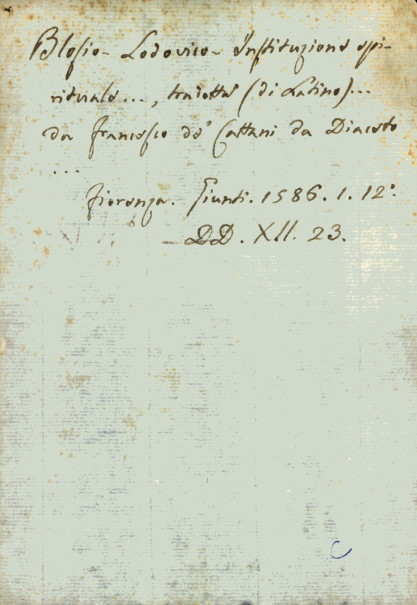 Blosio - Lodovico - Instituzione spi-
rituale..., tradotta (di Latino)...
da Francesco de' Cattani da Diaceto
...
Fiorenza. Giunti. 1586. 1. 12°
DD. XII. 23.
C